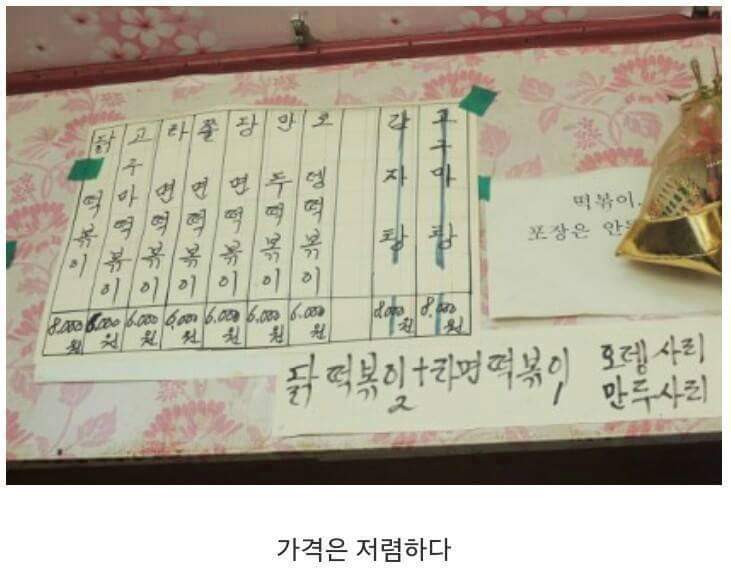 닭떡볶이 8.000원
고구마떡볶이 6.000원
라면떡볶이 6.000원
쫄면떡볶이 6.000원
짱면떡볶이 6.000원
만두떡볶이 6.000원
오뎅떡볶이 6.000원
감자탕 8.000원
고구마탕 8.000원
떡볶이.
포장은
닭떡볶이2+라면떡볶이1 오뎅사리
만두사리
가격은 저렴하다